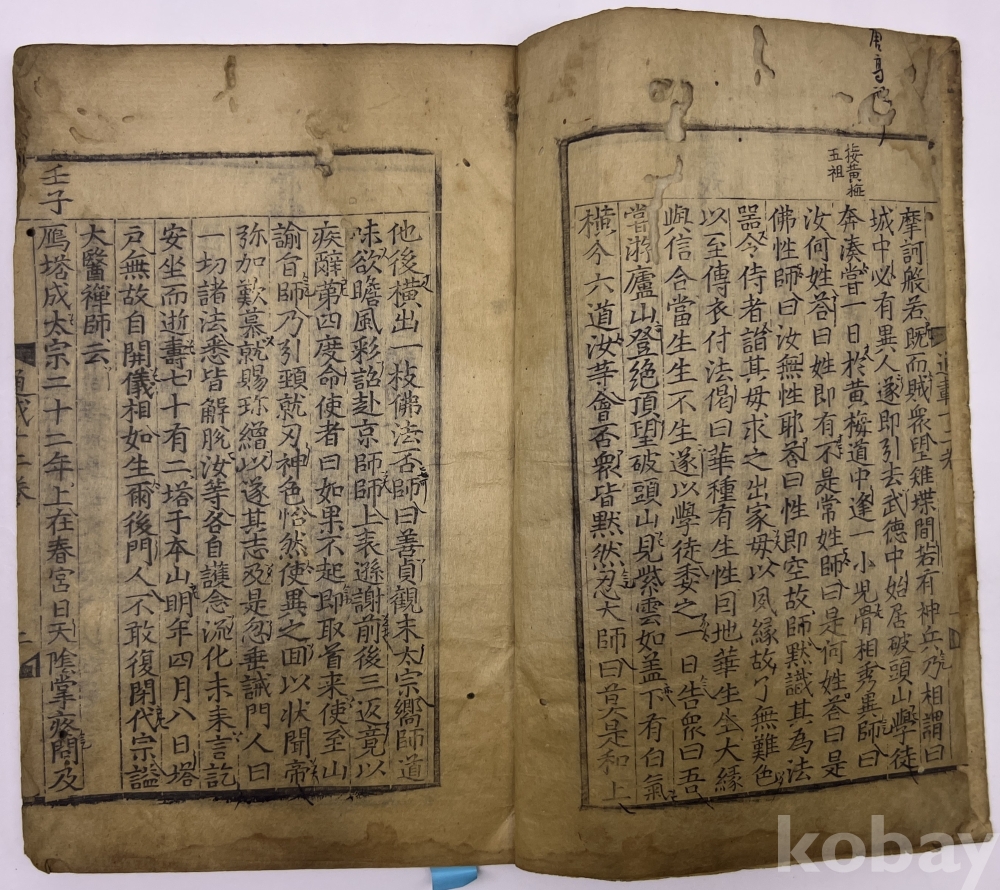 唐高
接黃梅
五祖
摩訶般若既而賊衆望雉堞間若有神兵乃相謂曰
城中必有異人遂即引去武德中始居破頭山學徒
奔湊嘗一日於黃梅道中逢一小児骨相秀異師曰
汝何姓荅曰姓即有不是常姓師曰是何姓荅曰是
佛性師曰汝無性耶荅曰性即空故師默識其為法
器令侍者詣其母求之出家母以夙緣故了無難色
以至傳衣付法偈曰華種有生性因地華生生大緣
與信合當生生不生遂以學徒委之一日告衆曰吾
嘗遊廬山登絶頂望破頭山見紫雲如盖下有白氣
橫分六道汝等會否衆皆默然忍大師曰莫是和上
他後橫出一枝佛法否師曰善貞觀末太宗嚮師道
味欲瞻風彩詔赴京師師上表遜謝前後三返竟以
疾辭第四度命使者曰如果不起即取首来使至山
諭旨師乃引頸就刃神色怡然使異之回以狀聞帝
弥加歎慕就賜珎繒以遂其志及是忽垂誡門人曰
一切諸法悉皆解脫汝等各自護念流化未来言訖
安坐而逝壽七十有二塔于本山明年四月八日塔
戶無故自開儀相如生爾後門人不敢復閉代宗諡
大醫禪師云
壬子
鴈塔成太宗二十二年上在春宮日天陰掌疼問及
kobay